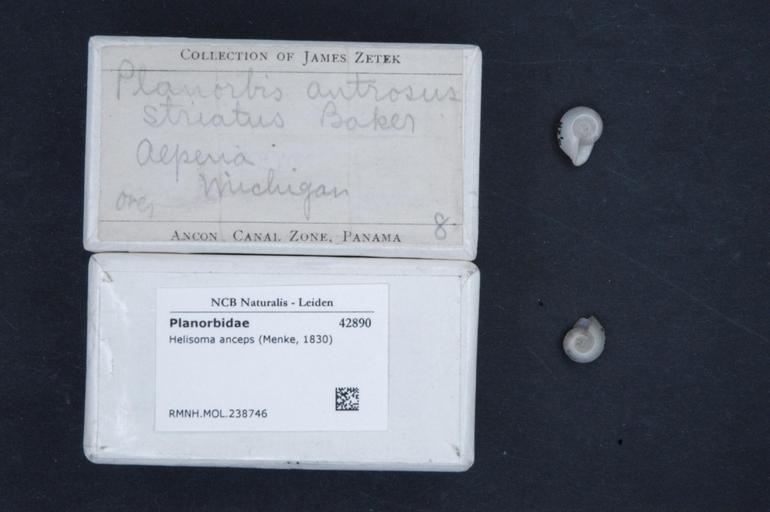 COLLECTION OF JAMES ZETEK
Planorbis antrosus
striatus Baker
Michigan
8
ANCON, CANAL ZONE, PANAMA
NCB Naturalis - Leiden
Planorbidae 42890
Helisoma anceps (Menke, 1830)
RMNH.MOL.238746